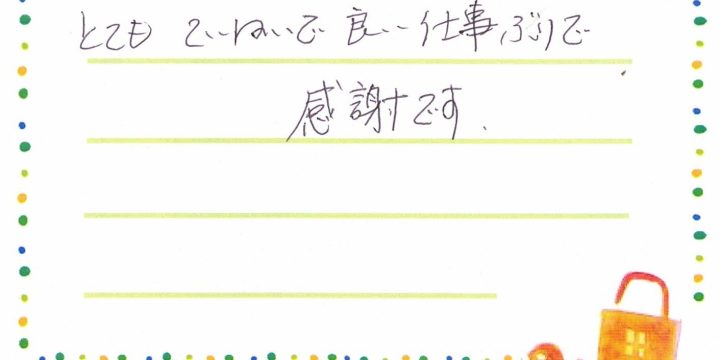 とても ていねいで 良い仕事ぶりで
感謝です.